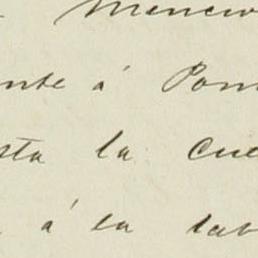 Mencio
nte á Pon
sta la cue
á la tab